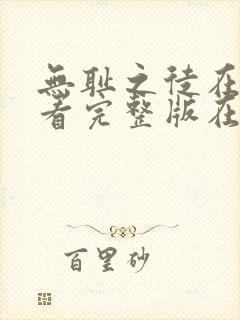 無耻之徒在
看完整版在
百里砂